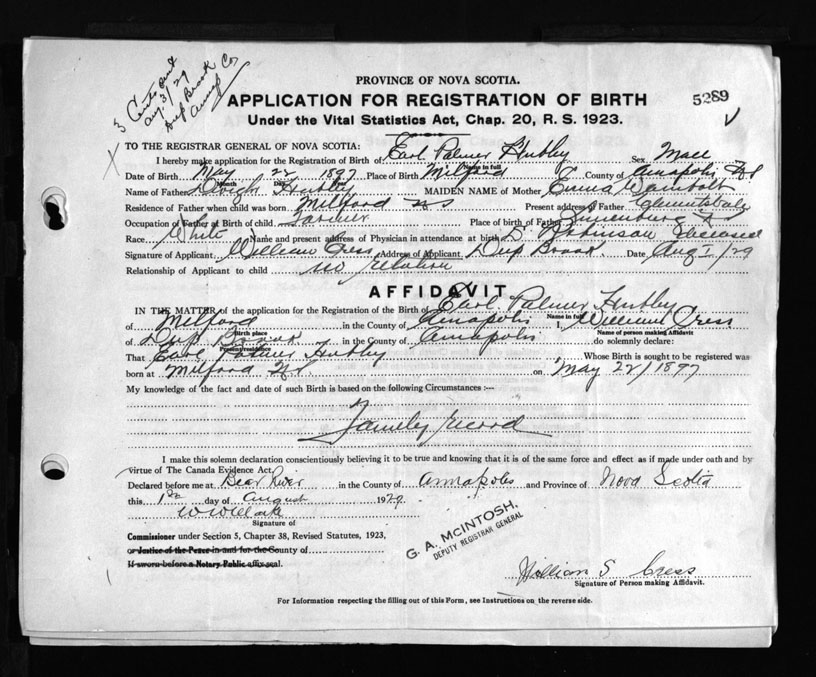 3 Certs sent
Aug. 3/29
Deep Brook Co
Annap
PROVINCE OF NOVA SCOTIA.
5289
APPLICATION FOR REGISTRATION OF BIRTH
Under the Vital Statistics Act, Chap. 20, R. S. 1923.
TO THE REGISTRAR GENERAL OF NOVA SCOTIA:
I hereby make application for the Registration of Birth of Earl Palmer Hubley Sex Male
Name in full
Date of Birth May 22 1897 Place of Birth Milford County of Annapolis NS
Month Day
Name of Father Hubley MAIDEN NAME of Mother Emma Wambolt
Residence of Father when child was born Milford NS Present address of Father Clementsvale
Occupation of Father at Birth of child Farmer Place of birth of Father Lunenburg
Race White Name and present address of Physician in attendance at birth Dr Robinson Deceased
Signature of Applicant William Cress Address of Applicant Deep Brook Date Aug 1/29
Relationship of Applicant to child no relation
AFFIDAVIT
IN THE MATTER of the application for the Registration of the Birth of Earl Palmer Hubley
Name in full
of Milford in the County of Annapolis I, William Cress
Birth place Name of person making Affidavit
of Deep Brook in the County of Annapolis do solemnly declare:
Present residence
That Earl Palmer Hubley Whose Birth is sought to be registered was
born at Milford NS on May 22/1897
My knowledge of the fact and date of such Birth is based on the following Circumstances :—
Familey record
I make this solemn declaration conscientiously believing it to be true and knowing that it is of the same force and effect as if made under oath and by
virtue of The Canada Evidence Act.
Declared before me at Bear River in the County of Annapolis and Province of Nova Scotia
this 1st day of August 1929
W W Clark
Signature of
Commissioner under Section 5, Chapter 38, Revised Statutes, 1923,
or Justice of the Peace in and for the County of
If sworn before a Notary Public affix seal.
G. A. McINTOSH,
DEPUTY REGISTRAR GENERAL
William S Cress
Signature of Person making Affidavit.
For Information respecting the filling out of this Form, see Instructions on the reverse side.